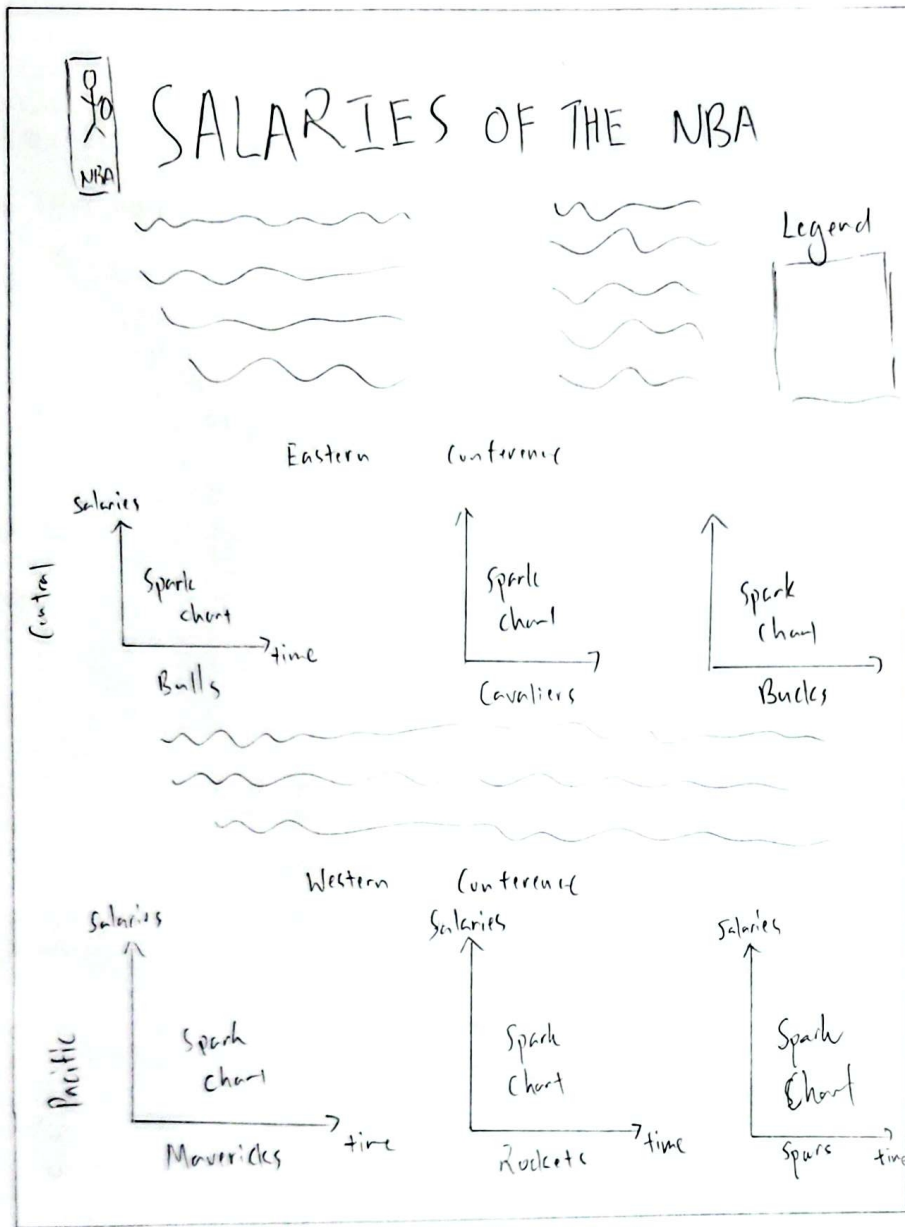 NBA
SALARIES OF THE NBA
Legend
Eastern Conference
Central
Salaries
Spark
Chart
time
Bulls
Spark
Chart
Cavaliers
Spark
Chart
Bucks
Western Conference
Pacific
Salaries
Spark
Chart
time
Mavericks
Salaries
Spark
Chart
time
Rockets
Salaries
Spark
Chart
time
Spurs